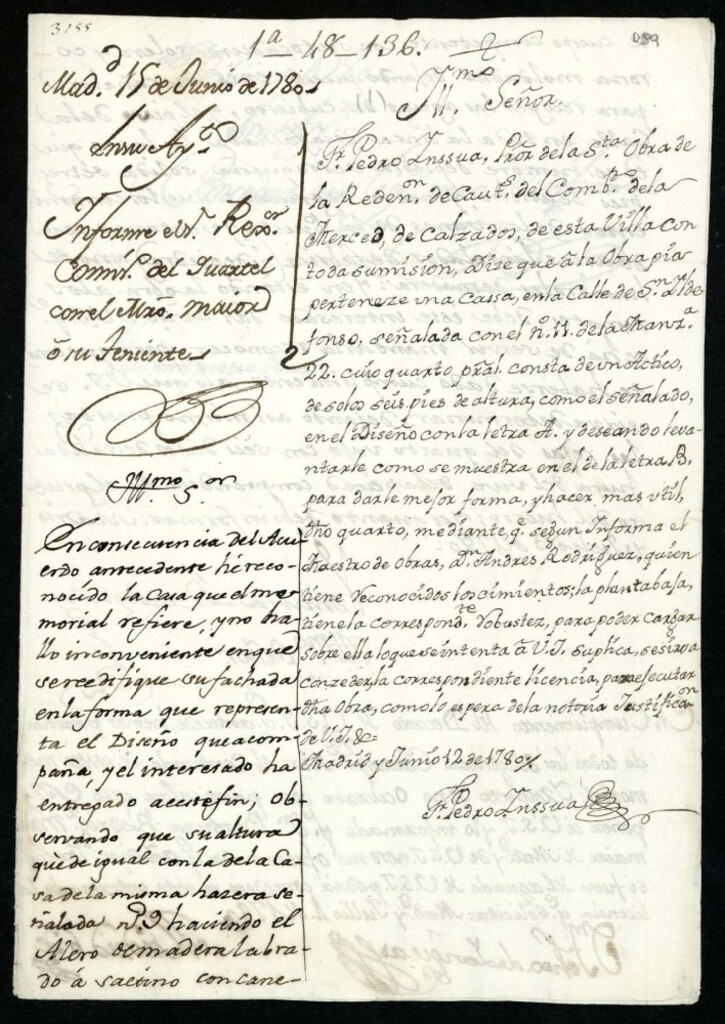 3155
1ª 48-136.
Mad.d 15 de Junio de 1780
En su Ay.to
Informe el S.r Rex.or
Comis.o del Quartel
con el Mro. maior
ó su Teniente
Yll.mo S.or
En consecuencia del Acu-
erdo antecedente hé reco-
nocido la Casa que el me-
morial refiere, y no ha-
llo inconveniente en que
se reedifique su fachada
en la forma que represen-
ta el Diseño que acom-
paña, y el interesado ha
entregado a este fin; Ob-
servando que su altura
quede igual con la de la Ca-
sa de la misma hazera se-
ñalada n.º 9 haciendo el
Alero de madera labra-
do á
con cane-
Yll.mo Señor.
Fr. Pedro Inssua, Pror de la S.ta Obra de
la Reden.on de Caut.s del Comb.to de la
Merced, de Calzados, de esta Villa con
toda sumision, Dize que â la Obra pia
perteneze una Cassa, en la Calle de S.n Ylde
fonso, señalada con el n.º 11. de la Manz.a
22. cuio quarto pral. consta de un Actico,
de solos seis pies de altura, como el señalado,
en el Diseño con la letra A. y deseando leva-
ntarle como se muestra en el de la letra B.
para darle mejor forma, y hacer mas util,
dho quarto, mediante q.e segun Informa el
Maestro de obras, D.n Andres Rodriguez, quien
tiene reconocidos los cimientos; la planta baja,
tiene la correspond.te robustez, para poder cargar
sobre ella lo que se intenta â V.I. suplica, se sirva
conzeder la correspondiente licencia, para executar
dha Obra, como lo espera de la notoria Justificac.on
de V.I. &=
Madrid y Junio 12 de 1780
Fr. Pedro Inssua